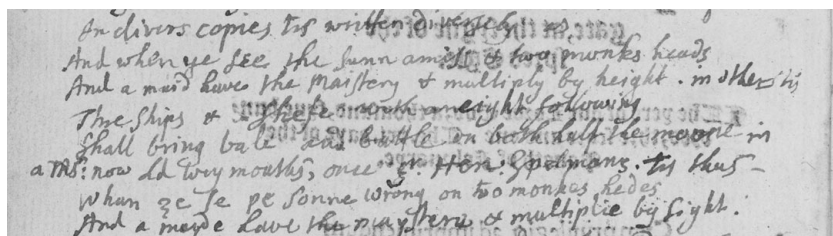 In divers copies tis written diversly as,
And when ye see the sunn amiss & two monks heads
And a maid have the Maistery & multiply by height. in others tis
Thre ships & a sheft with an eight following
Shall bring bale and battle on both half the moone in
a MS: now Ld weymouths, once Sr. Hen: Spelmans. tis thus –
Whan ze se þe sonne wrong on to monkes hedes
And a mayde have the maystery & multiplie by sight.